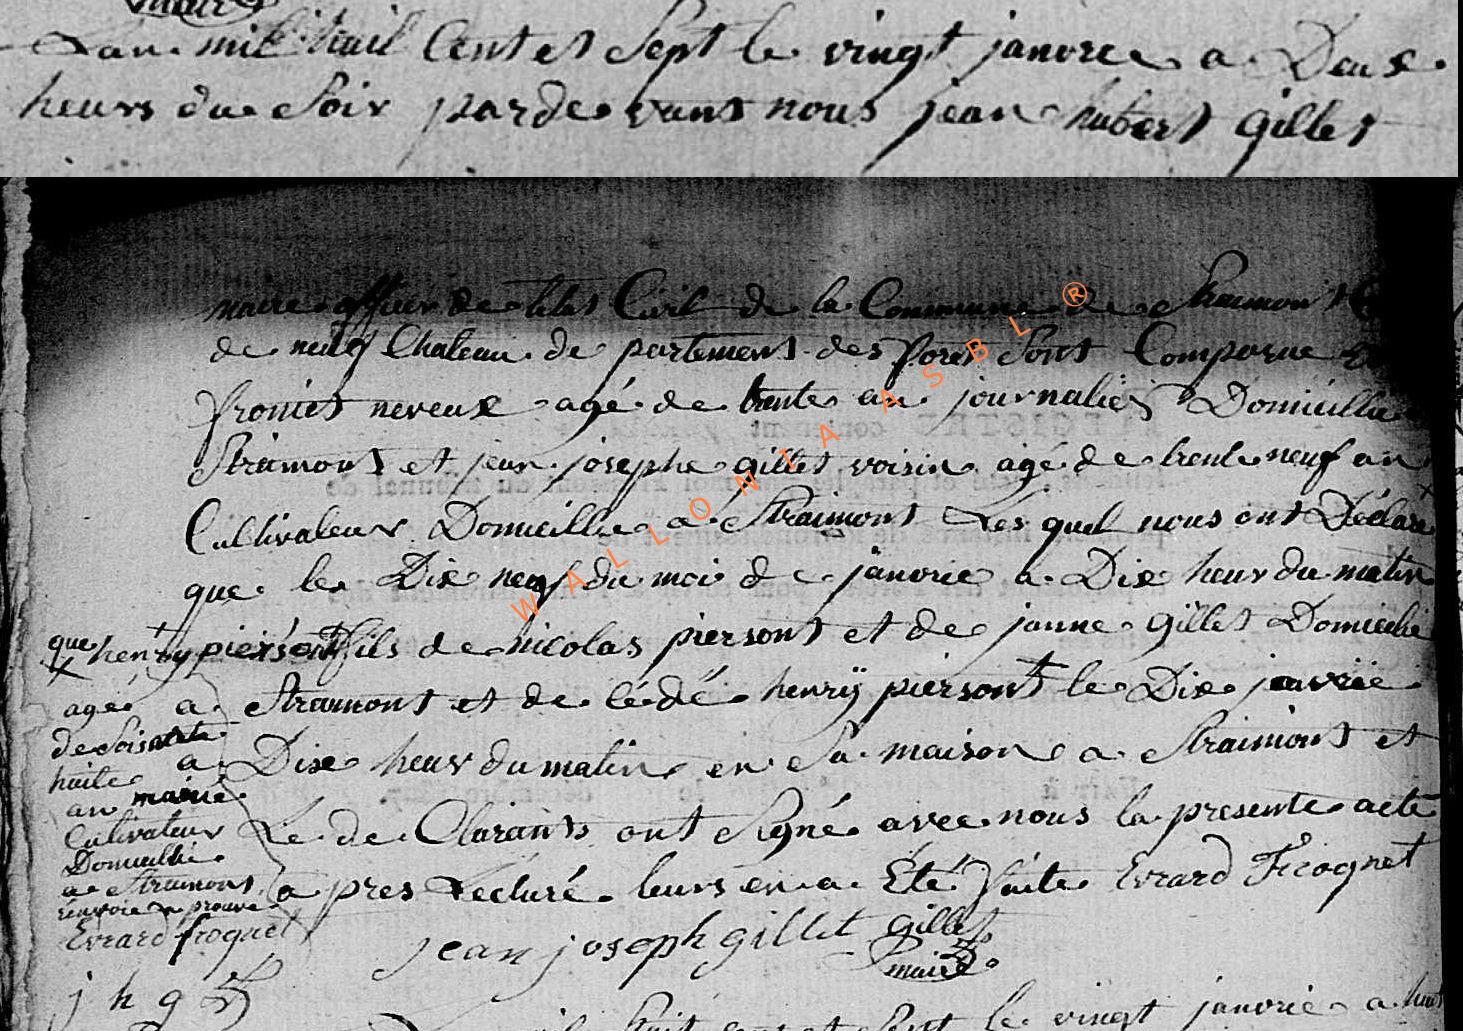 Lan mil huit Cent et Sept le vingt janvree a Deuse
heurs du Soir pardevant nous jean hubert gillet
maire officier de letat Civil de la Commune de Straimont
de neuf Chateau de partement des foret Sont Comparue
neveuse agé de trente an journalier Domicillie
Straimont et jean josephe gillet voisin agé de trente neuf an
Cultivateur Domicillie a Straimont Les quel nous ont Déclaré
que le Dix neuf du moi de janvrie a Dix heur du matin
que henry piersont fils de nicolas piersont et de janne gillet Domicilie
a Straimont et de cédé henrÿ piersont le Dix janvrie
a Dixe heur du matin en Sa maison a Straimont et
Le de Clarants ont Signé avec nous la presente acte
a pres Lecturé leurs en a Eté faite Evrard Frognet
agé
de Soisante
huite
an marié
Cultivateur
Domicillie
a Straimont
renvoie a prouve
Evrard froguet
jean joseph gillet gillet
maire
j h g
mil huit cent et Sept le vingt janvrie a huit
WALLONIA ASBL ®